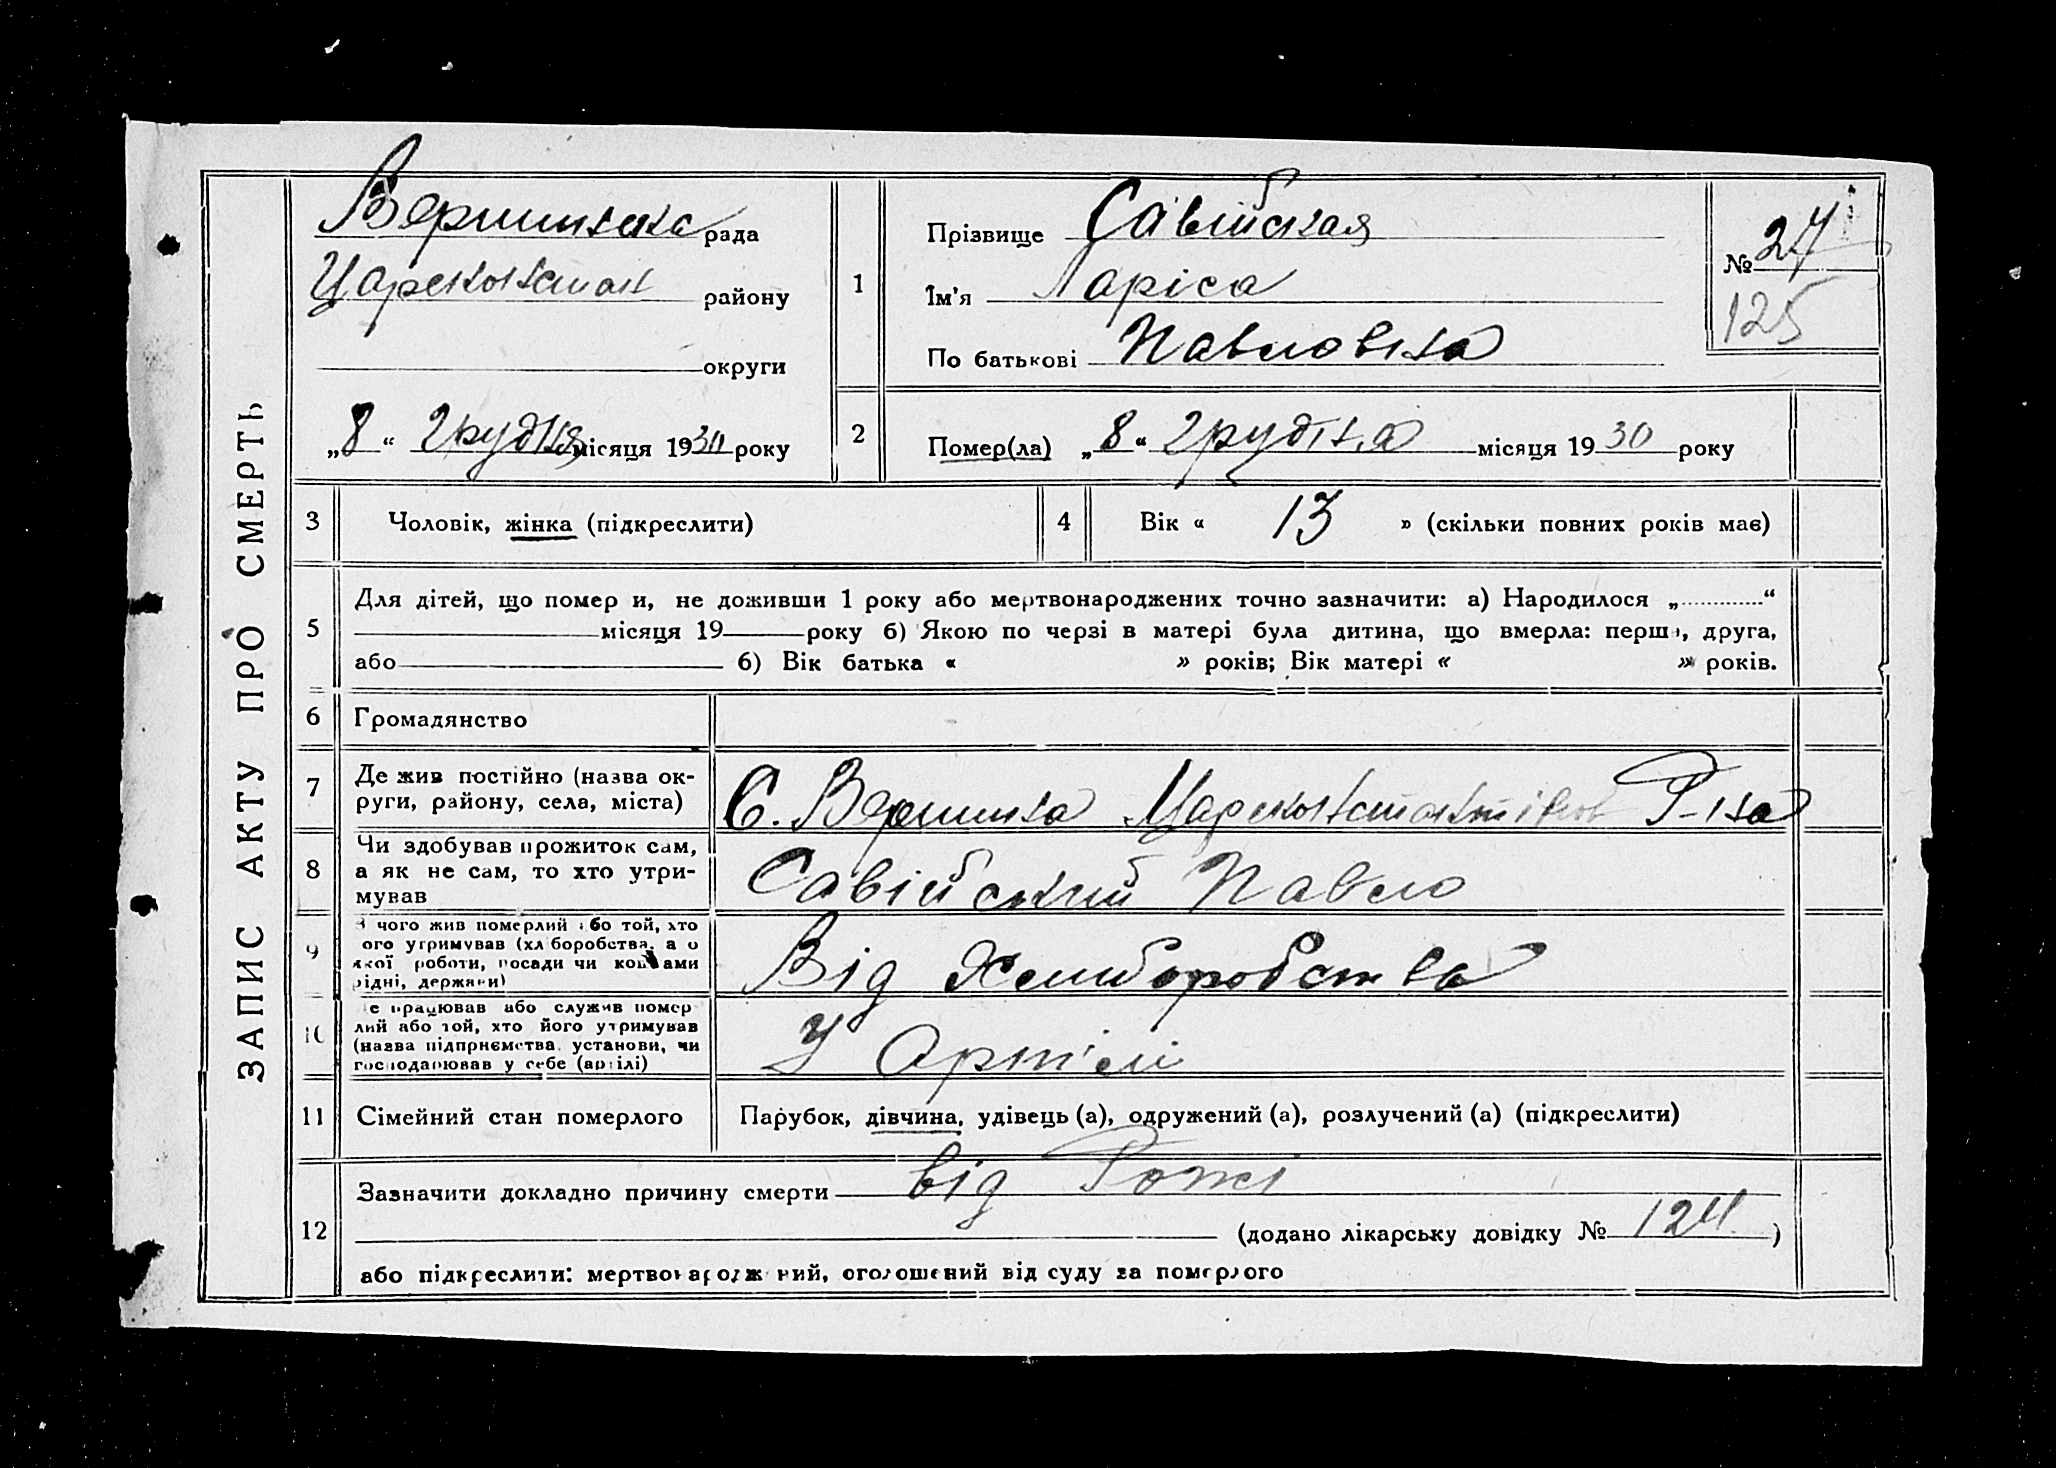 ЗАПИС АКТУ ПРО СМЕРТЬ
Вершинська рада
Царекостян району
округи
„8“ грудня місяця 1930 року
1
Прізвище Савійская
Їм’я Ларіса
По батькові Павловна
№ 27
125
2
Помер(ла) „8“ грудня місяця 1930 року
3 Чоловік, жінка (підкреслити)
4 Вік « 13 » (скільки повних років має)
5
Для дітей, що помер и, не доживши 1 року або мертвонароджених точно зазначити: а) Народилося „ “
місяця 19 року б) Якою по черзі в матері була дитина, що вмерла: перша, друга,
або 6) Вік батька « » років; Вік матері « » років.
6 Громадянство
7 Де жив постійно (назва ок-
руги, району, села, міста)
С. Вершина Р-на
8 Чи здобував прожиток сам,
а як не сам, то хто утри-
мував
Савійский Павло
9 З чого жив померлий або той, хто
ого утримував (хліборобства, а о
якої роботи, посади чи коштами
рідні, держави)
Від Хлиборобства
10 е працював або служив помер
лий або той, хто його утримував
(назва підприємства, установи, чи
господарював у себе (артілі)
У Артілі
11 Сімейний стан померлого
Парубок, дівчина, удівець (а), одружений (а), розлучений (а) (підкреслити)
12
Зазначити докладно причину смерти від Рожі
(додано лікарську довідку № 124 )
або підкреслити: мертвонароджений, оголошений від суду за померлого